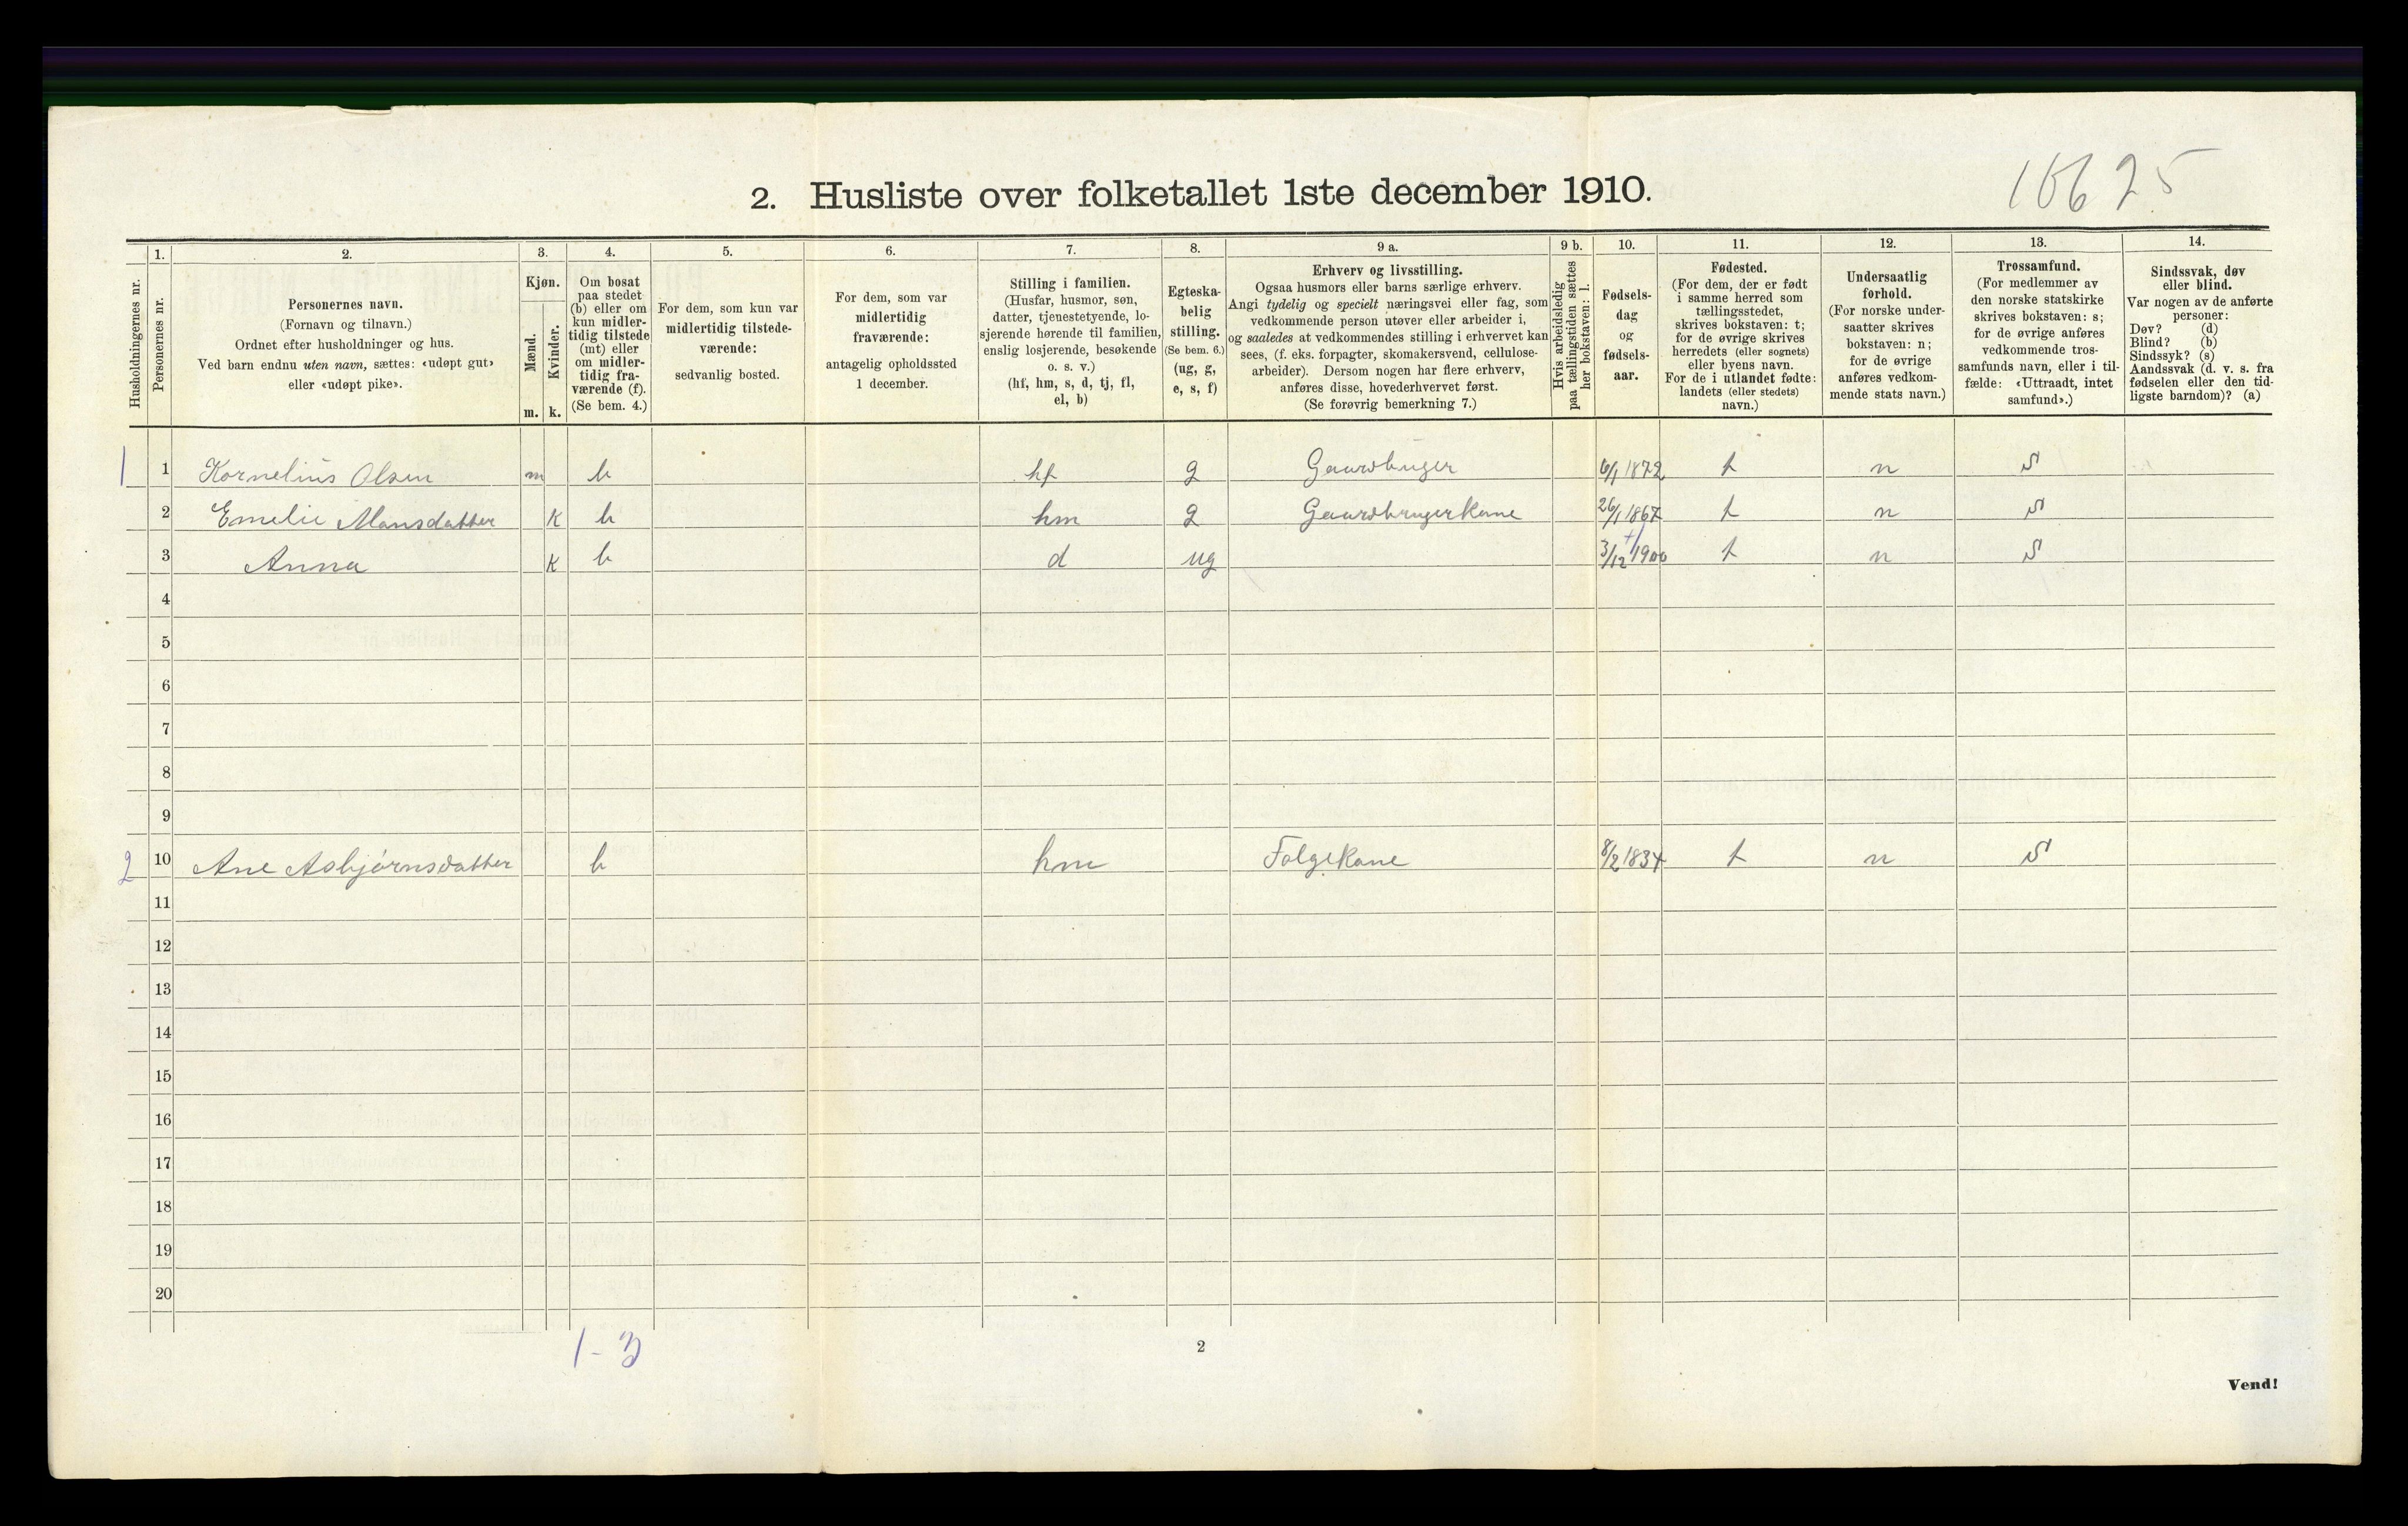 10625
2. Husliste over folketallet 1ste december 1910.
Husholdningernes nr.
1.
Personernes nr.
2.
Personernes navn.
(Fornavn og tilnavn.)
Ordnet efter husholdninger og hus.
Ved barn endnu uten navn, sættes: «udøpt gut»
eller «udøpt pike».
3.
Kjøn.
Mænd.
Kvinder.
m. k.
4.
Om bosat
paa stedet
(b) eller om
kun midler-
tidig tilstede
(mt) eller
om midler-
tidig fra-
værende (f).
(Se bem. 4.)
5.
For dem, som kun var
midlertidig tilstede-
værende:
sedvanlig bosted.
6.
For dem, som var
midlertidig
fraværende:
antagelig opholdssted
1 december.
7.
Stilling i familien.
(Husfar, husmor, søn,
datter, tjenestetyende, lo-
sjerende hørende til familien,
enslig losjerende, besøkende
o. s. v.)
(hf, hm, s, d, tj, fl,
el, b)
8.
Egteska-
belig
stilling.
(Se bem. 6.)
(ug, g,
e, s, f)
9 a.
Erhverv og livsstilling.
Ogsaa husmors eller barns særlige erhverv.
Angi tydelig og specielt næringsvei eller fag, som
vedkommende person utøver eller arbeider i,
og saaledes at vedkommendes stilling i erhvervet kan
sees, (f. eks. forpagter, skomakersvend, cellulose-
arbeider). Dersom nogen har flere erhverv,
anføres disse, hovederhvervet først.
(Se forøvrig bemerkning 7.)
9 b.
Hvis arbeidsledig
paa tællingstiden sættes
her bokstaven: l.
10.
Fødsels-
dag
og
fødsels-
aar.
11.
Fødested.
(For dem, der er født
i samme herred som
tællingsstedet,
skrives bokstaven: t;
for de øvrige skrives
herredets (eller sognets)
eller byens navn.
For de i utlandet fødte:
landets (eller stedets)
navn.)
12.
Undersaatlig
forhold.
(For norske under-
saatter skrives
bokstaven: n;
for de øvrige
anføres vedkom-
mende stats navn.)
13.
Trossamfund.
(For medlemmer av
den norske statskirke
skrives bokstaven: s;
for de øvrige anføres
vedkommende tros-
samfunds navn, eller i til-
fælde: «Uttraadt, intet
samfund».)
14.
Sindssvak, døv
eller blind.
Var nogen av de anførte
personer:
Døv? (d)
Blind? (b)
Sindssyk? (s)
Aandssvak (d. v. s. fra
fødselen eller den tid-
ligste barndom)? (a)
1 1 Kornelius Olsen m b hf g Gaardbruger 6/1 1872 t n S
2 Emelie Monsdatter k b hm g Gaardbrugerkone 26/1 1867 t n S
3 Anna k b d ug 3/12 1900 t n S
4
5
6
7
8
9
2 10 Ane Asbjørnsdatter b hm Folgekone 8/2 1834 t n S
11
12
13
14
15
16
17
18
19
20
1-3
2
Vend!